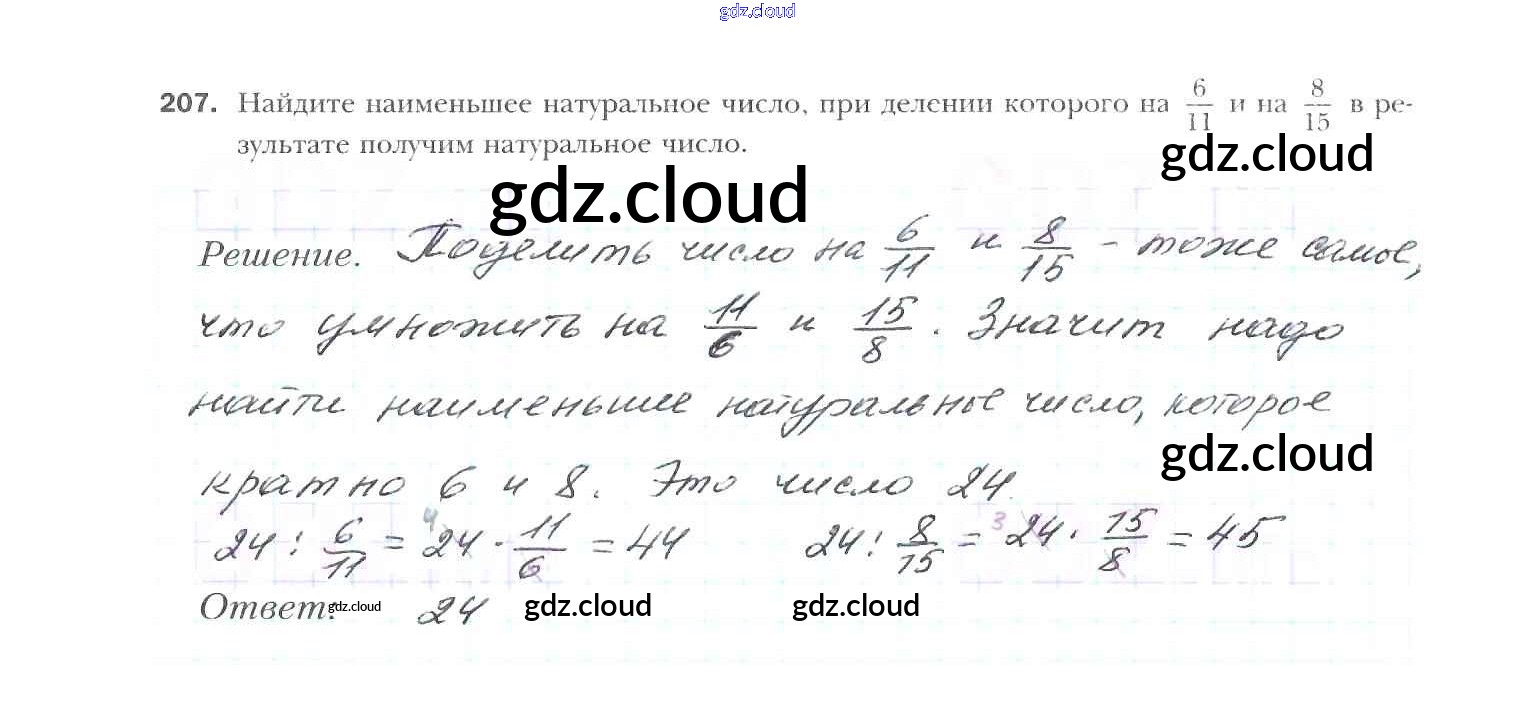 gdz.cloud
207. Найдите наименьшее натуральное число, при делении которого на 6/11 и на 8/15 в ре-
зультате получим натуральное число.
gdz.cloud
gdz.cloud
Решение. Поделить число на 6/11 и 8/15 - тоже самое,
что умножить на 11/6 и 15/8. Значит надо
найти наименьшее натуральное число, которое
gdz.cloud
кратно 6 и 8. Это число 24.
24 : 6/11 = 24 4 · 11/6 = 44 24 : 8/15 = 3 24 · 15/8 = 45
Ответ: gdz.cloud 24 gdz.cloud gdz.cloud